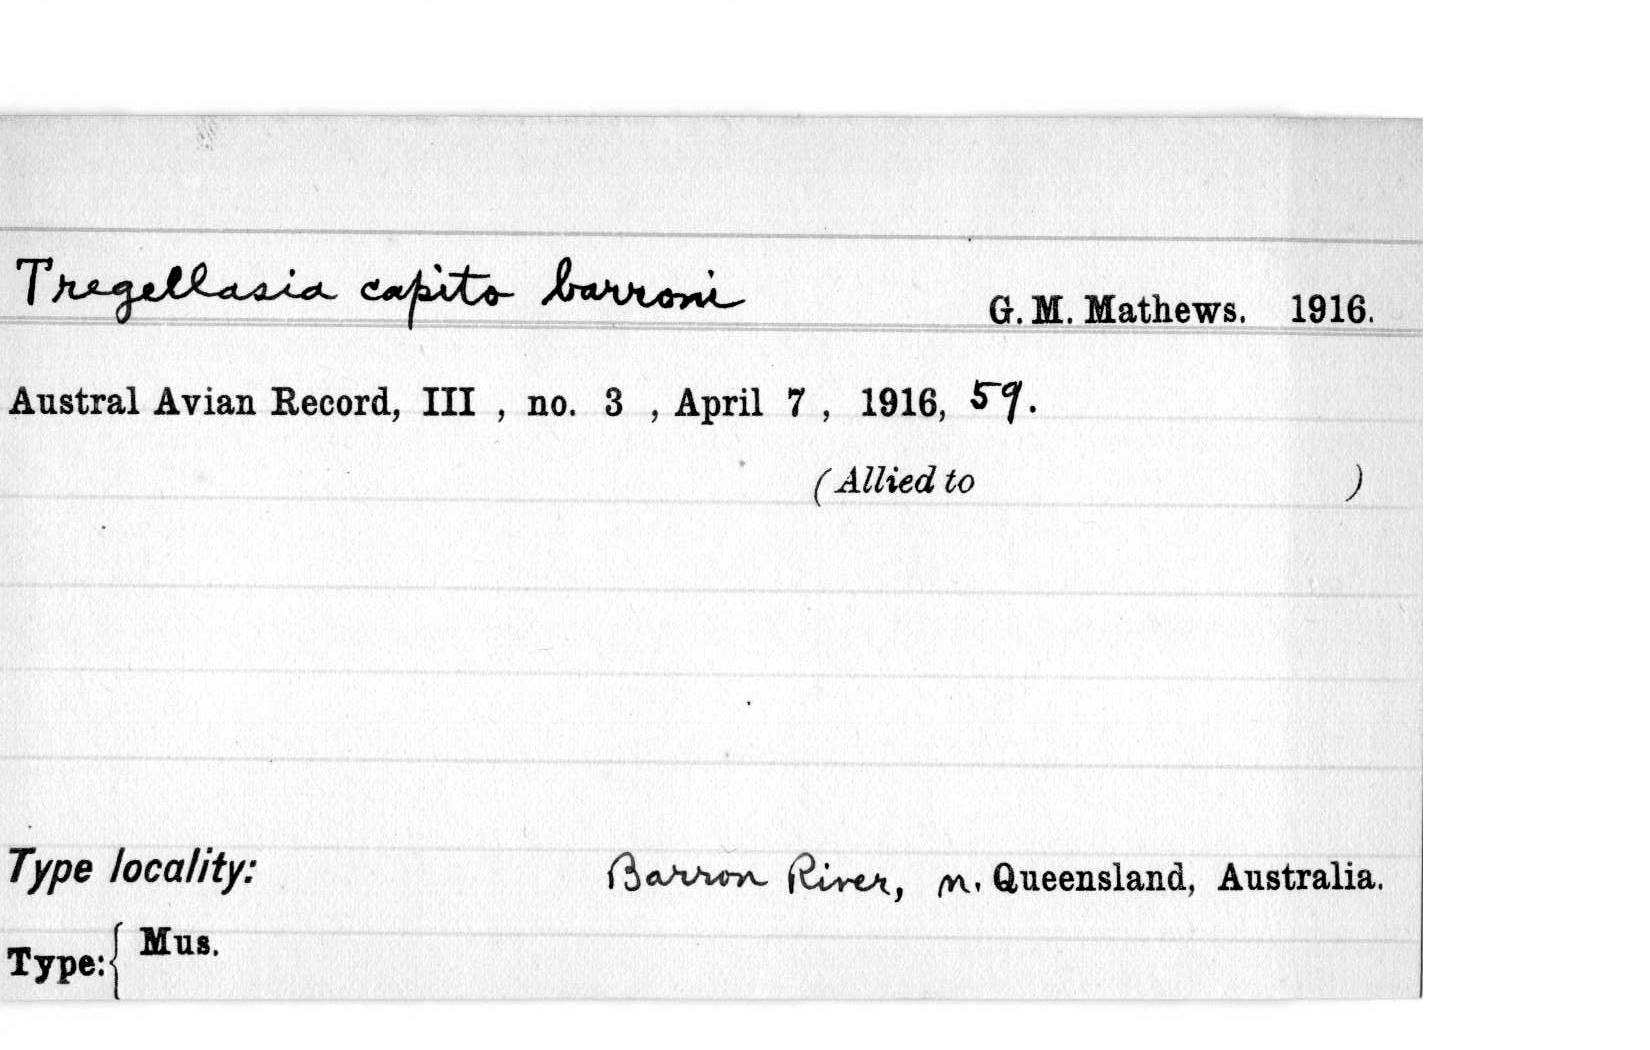 Tregellasia capito barroni G. M. Mathews. 1916.
Austral Avian Record, III , no. 3 , April 7 , 1916, 59.
(Allied to )
Type locality: Barron River, n. Queensland, Australia.
Type: { Mus.